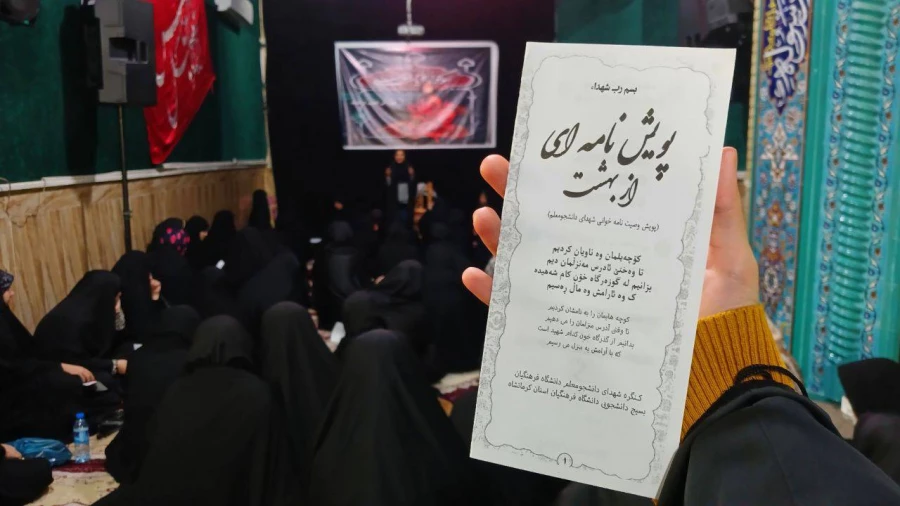 بسم رب شهداء
پویش نامه ای
از بهشت
(پویش وصیت نامه خوانی شهدای دانشجومعلم)
کۆچەیلمان وە ناویان کردیم
تا وەختێ ئادرس مەنزلمان دیم
بزانیم لە گوزەرگاە خۆن کام شەهیدە
ک وە ئارامش وە ماڵ رەسیم
کوچه هایمان را به نامشان کردیم
تا وقتی آدرس منزلمان را می دهیم
بدانیم از گذرگاه خون کدام شهید است
که با آرامش به منزل می رسیم
کنگره شهدای دانشجومعلم دانشگاه فرهنگیان
بسیج دانشجویی دانشگاه فرهنگیان استان کرمانشاه
۱